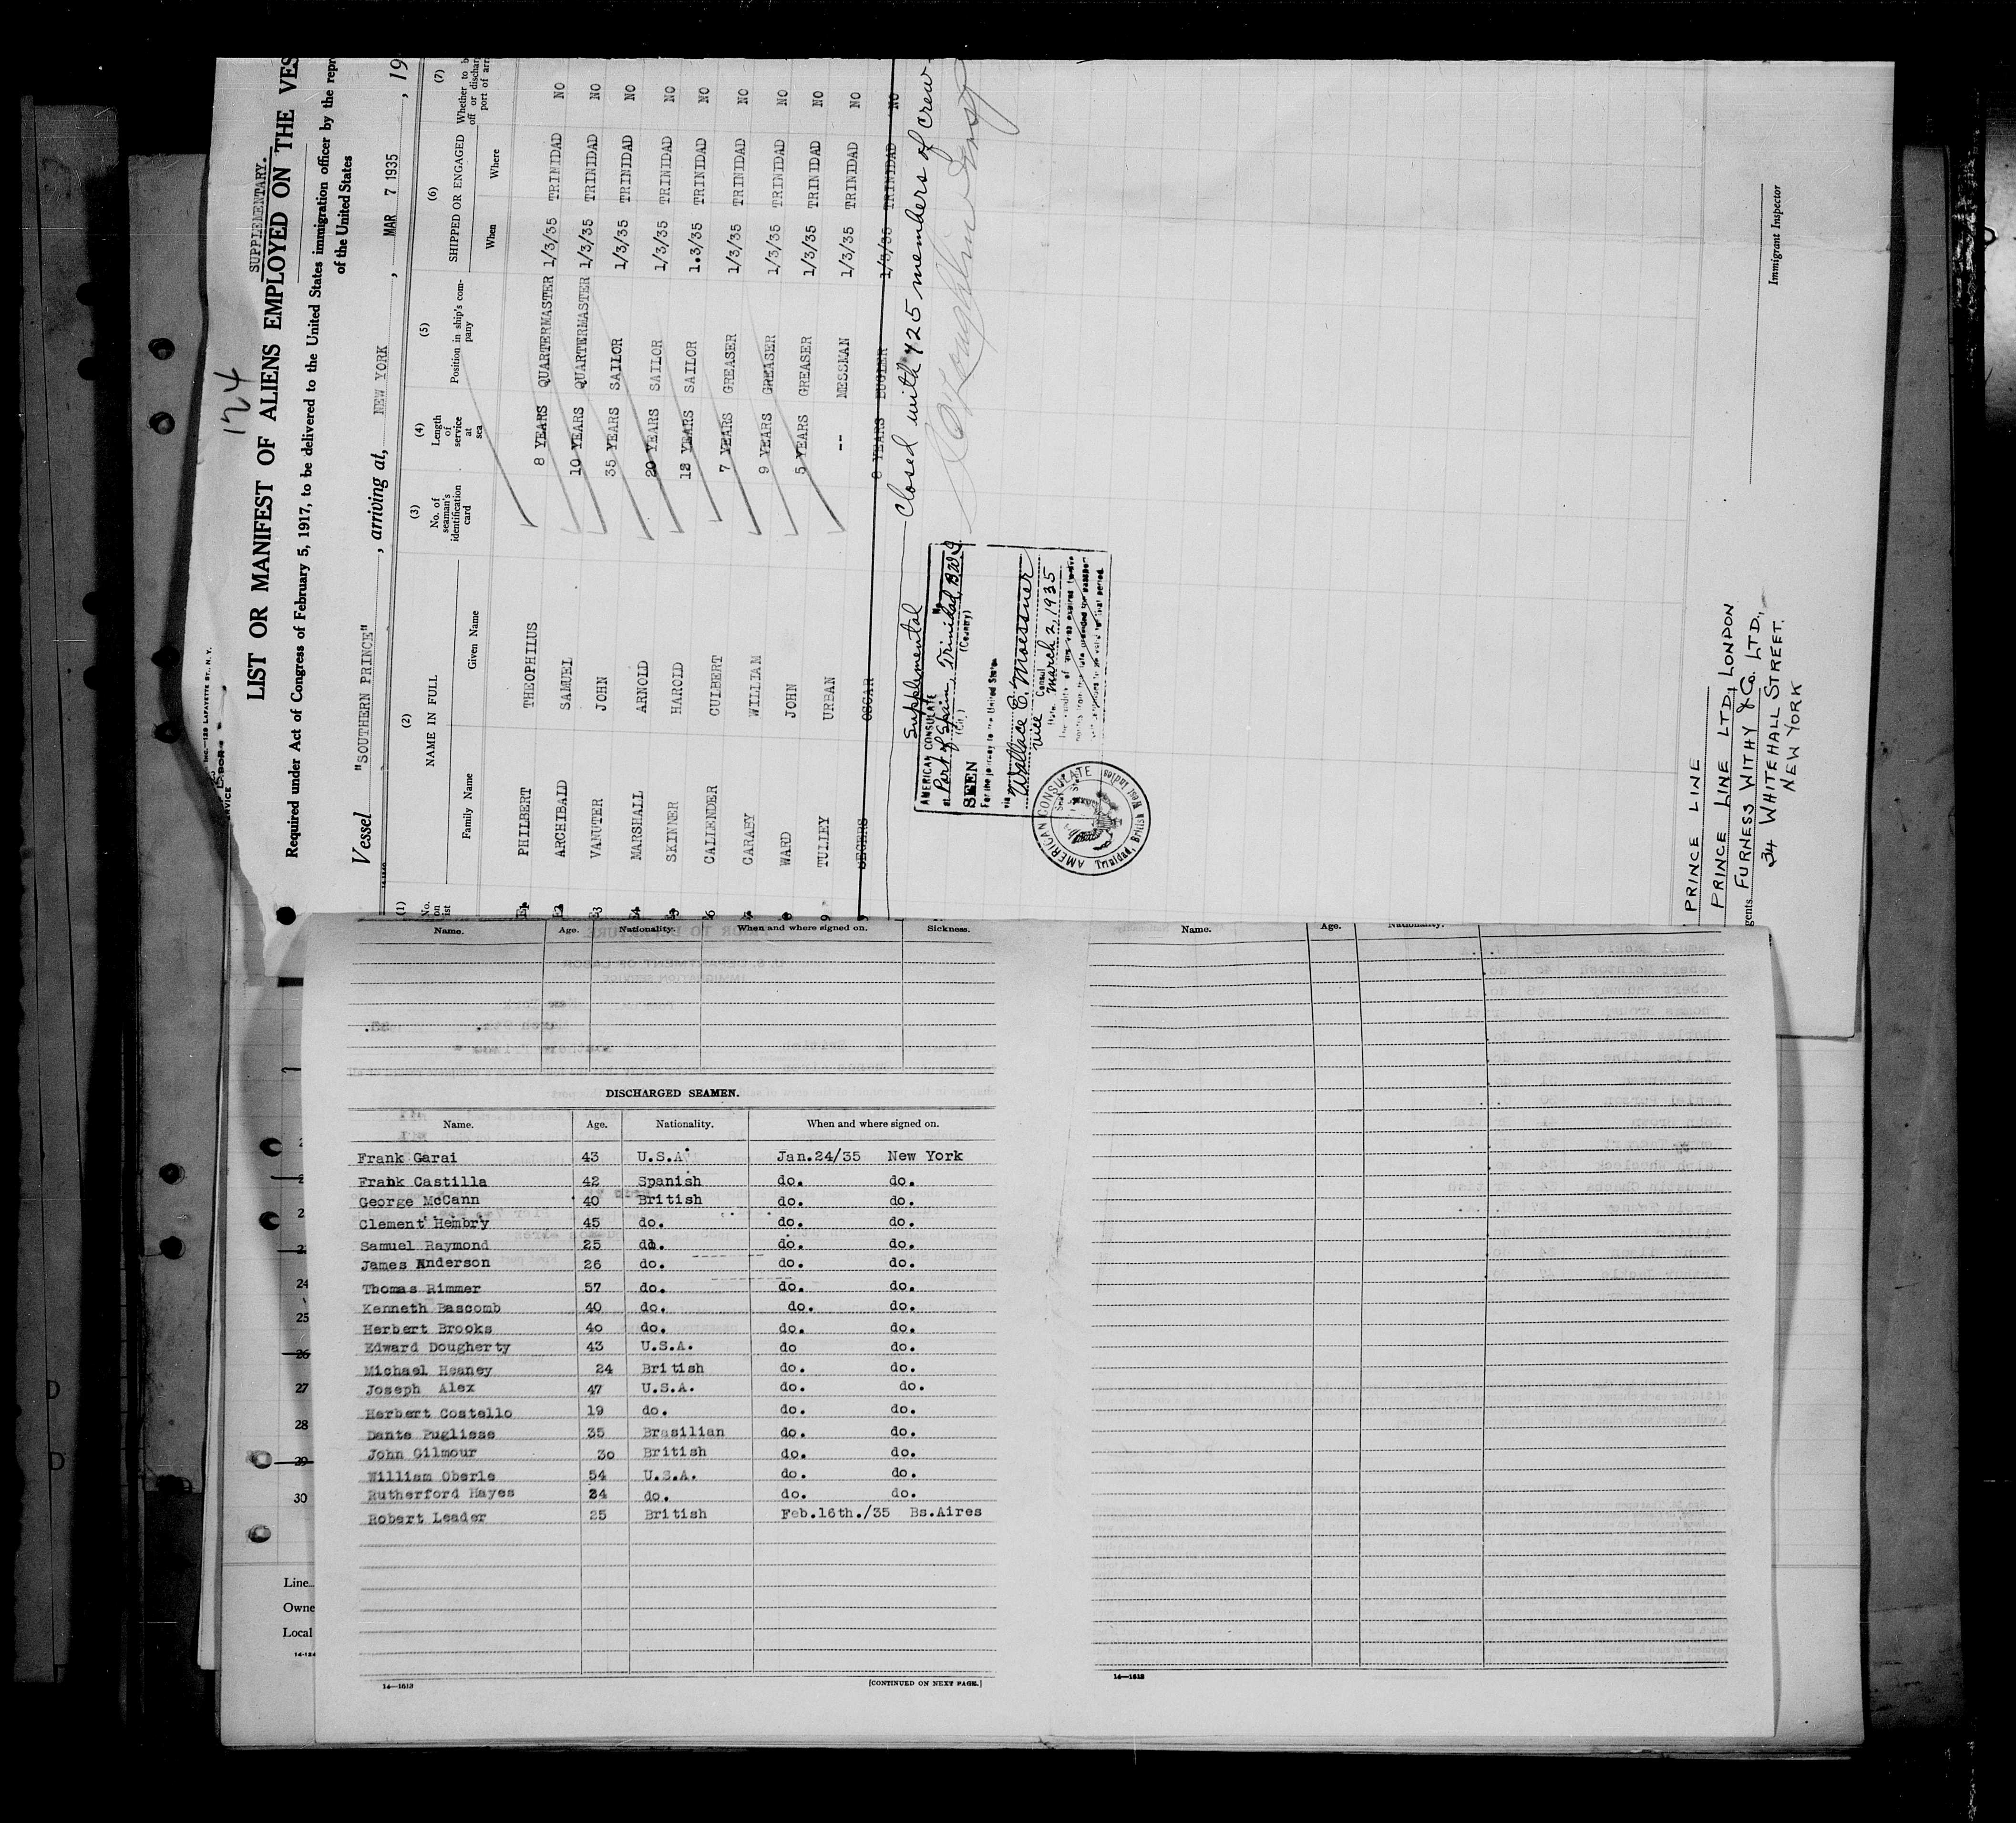 124
SUPPLEMENTARY.
LIST OR MANIFEST OF ALIENS EMPLOYED ON THE VES
Required under Act of Congress of February 5, 1917, to be delivered to the United States immigration officer by the repr
of the United States
Vessel "SOUTHERN PRINCE", arriving at, NEW YORK, MAR 7 1935, 19
(1) (2) (3) (4) (5) (6) (7)
No. on list NAME IN FULL No. of seaman's identification card Length of service at sea Position in ship's company SHIPPED OR ENGAGED Whether to b off or dischar port of arr
Family Name Given Name When Where
PHILBERT THEOPHILUS 8 YEARS QUARTERMASTER 1/3/35 TRINIDAD NO
ARCHIBALD SAMUEL 10 YEARS QUARTERMASTER 1/3/35 TRINIDAD NO
3 VANUTER JOHN 35 YEARS SAILOR 1/3/35 TRINIDAD NO
4 MARSHALL ARNOLD 20 YEARS SAILOR 1/3/35 TRINIDAD NO
SKINNER HAROLD 12 YEARS SAILOR 1.3/35 TRINIDAD NO
6 CALLENDER CULBERT 7 YEARS GREASER 1/3/35 TRINIDAD NO
CARABY WILLIAM 9 YEARS GREASER 1/3/35 TRINIDAD NO
8 WARD JOHN 5 YEARS GREASER 1/3/35 TRINIDAD NO
9 TULLEY URBAN -- MESSMAN 1/3/35 TRINIDAD NO
SEGERS OSCAR 8 YEARS BUGLER 1/3/35 TRINIDAD NO
Closed with 425 members of crew
Supplemental
AMERICAN CONSULATE
at Port of Spain, Trinidad, B.W.I.
(City) (Country)
SEEN
For the journey to the United States
via
Wallace E. Moessner
Vice Consul
Date March 2, 1935
AMERICAN CONSULATE
Trinidad, British West Indies
PRINCE LINE
PRINCE LINE LTD, LONDON
gents FURNESS WITHY & Co. LTD.,
34 WHITEHALL STREET.
NEW YORK
Immigrant Inspector
Name. Age. Nationality. When and where signed on. Sickness.
DISCHARGED SEAMEN.
Name. Age. Nationality. When and where signed on.
Frank Garai 43 U.S.A. Jan.24/35 New York
Frank Castilla 42 Spanish do. do.
George McCann 40 British do. do.
Clement Hembry 45 do. do. do.
Samuel Raymond 25 do. do. do.
James Anderson 26 do. do. do.
Thomas Rimmer 57 do. do. do.
Kenneth Bascomb 40 do. do. do.
Herbert Brooks 4o do. do. do.
Edward Dougherty 43 U.S.A. do do.
Michael Heaney 24 British do. do.
Joseph Alex 47 U.S.A. do. do.
Herbert Costello 19 do. do. do.
Dante Pugliese 35 Brasilian do. do.
John Gilmour 3o British do. do.
William Oberle 54 U.S.A. do. do.
Rutherford Hayes 24 do. do. do.
Robert Leader 25 British Feb.16th./35 Bs.Aires
14—1613 [CONTINUED ON NEXT PAGE.]
Name. Age. Nationality.
14—1613
24
25
26
27
28
29
30
Line
Owne
Local